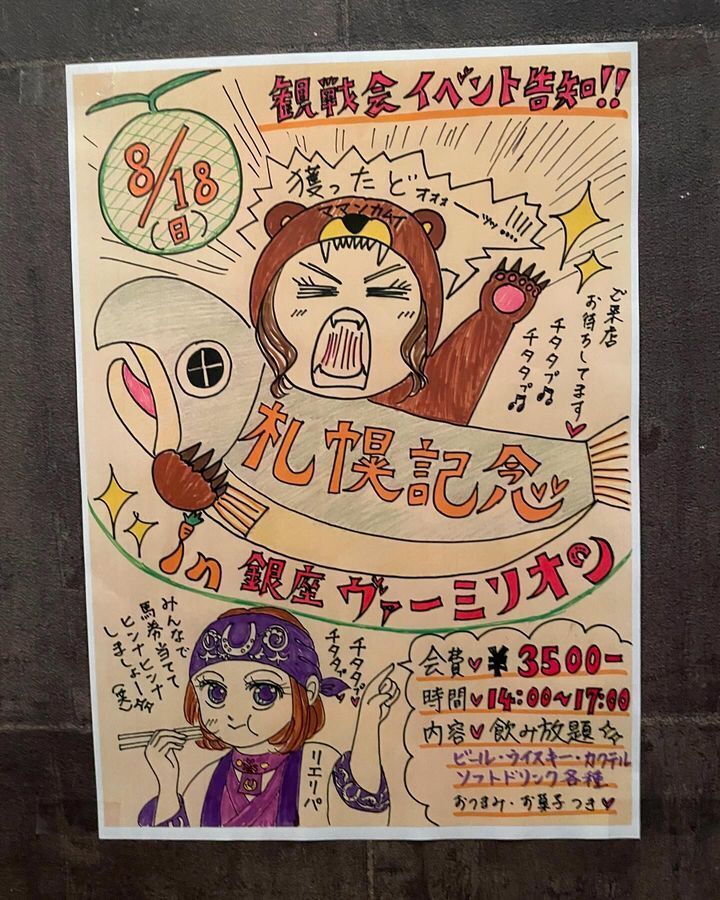 観戦会イベント告知!!
8/18
(日)
獲ったどォォォーッッ....
ママンカムイ
ご来店
お待ちしてます♥
チタタプ♫
チタタプ♫
札幌記念
in 銀座 ヴァーミリオン
みんなで
馬券当てて
ヒンナヒンナ
しましょー
(笑)
チタタプ
チタタプ
リエリパ
会費♥¥3500-
時間♥14:00〜17:00
内容♥飲み放題
ビール・ウイスキー・カクテル
ソフトドリンク各種
おつまみ・お菓子つき♥